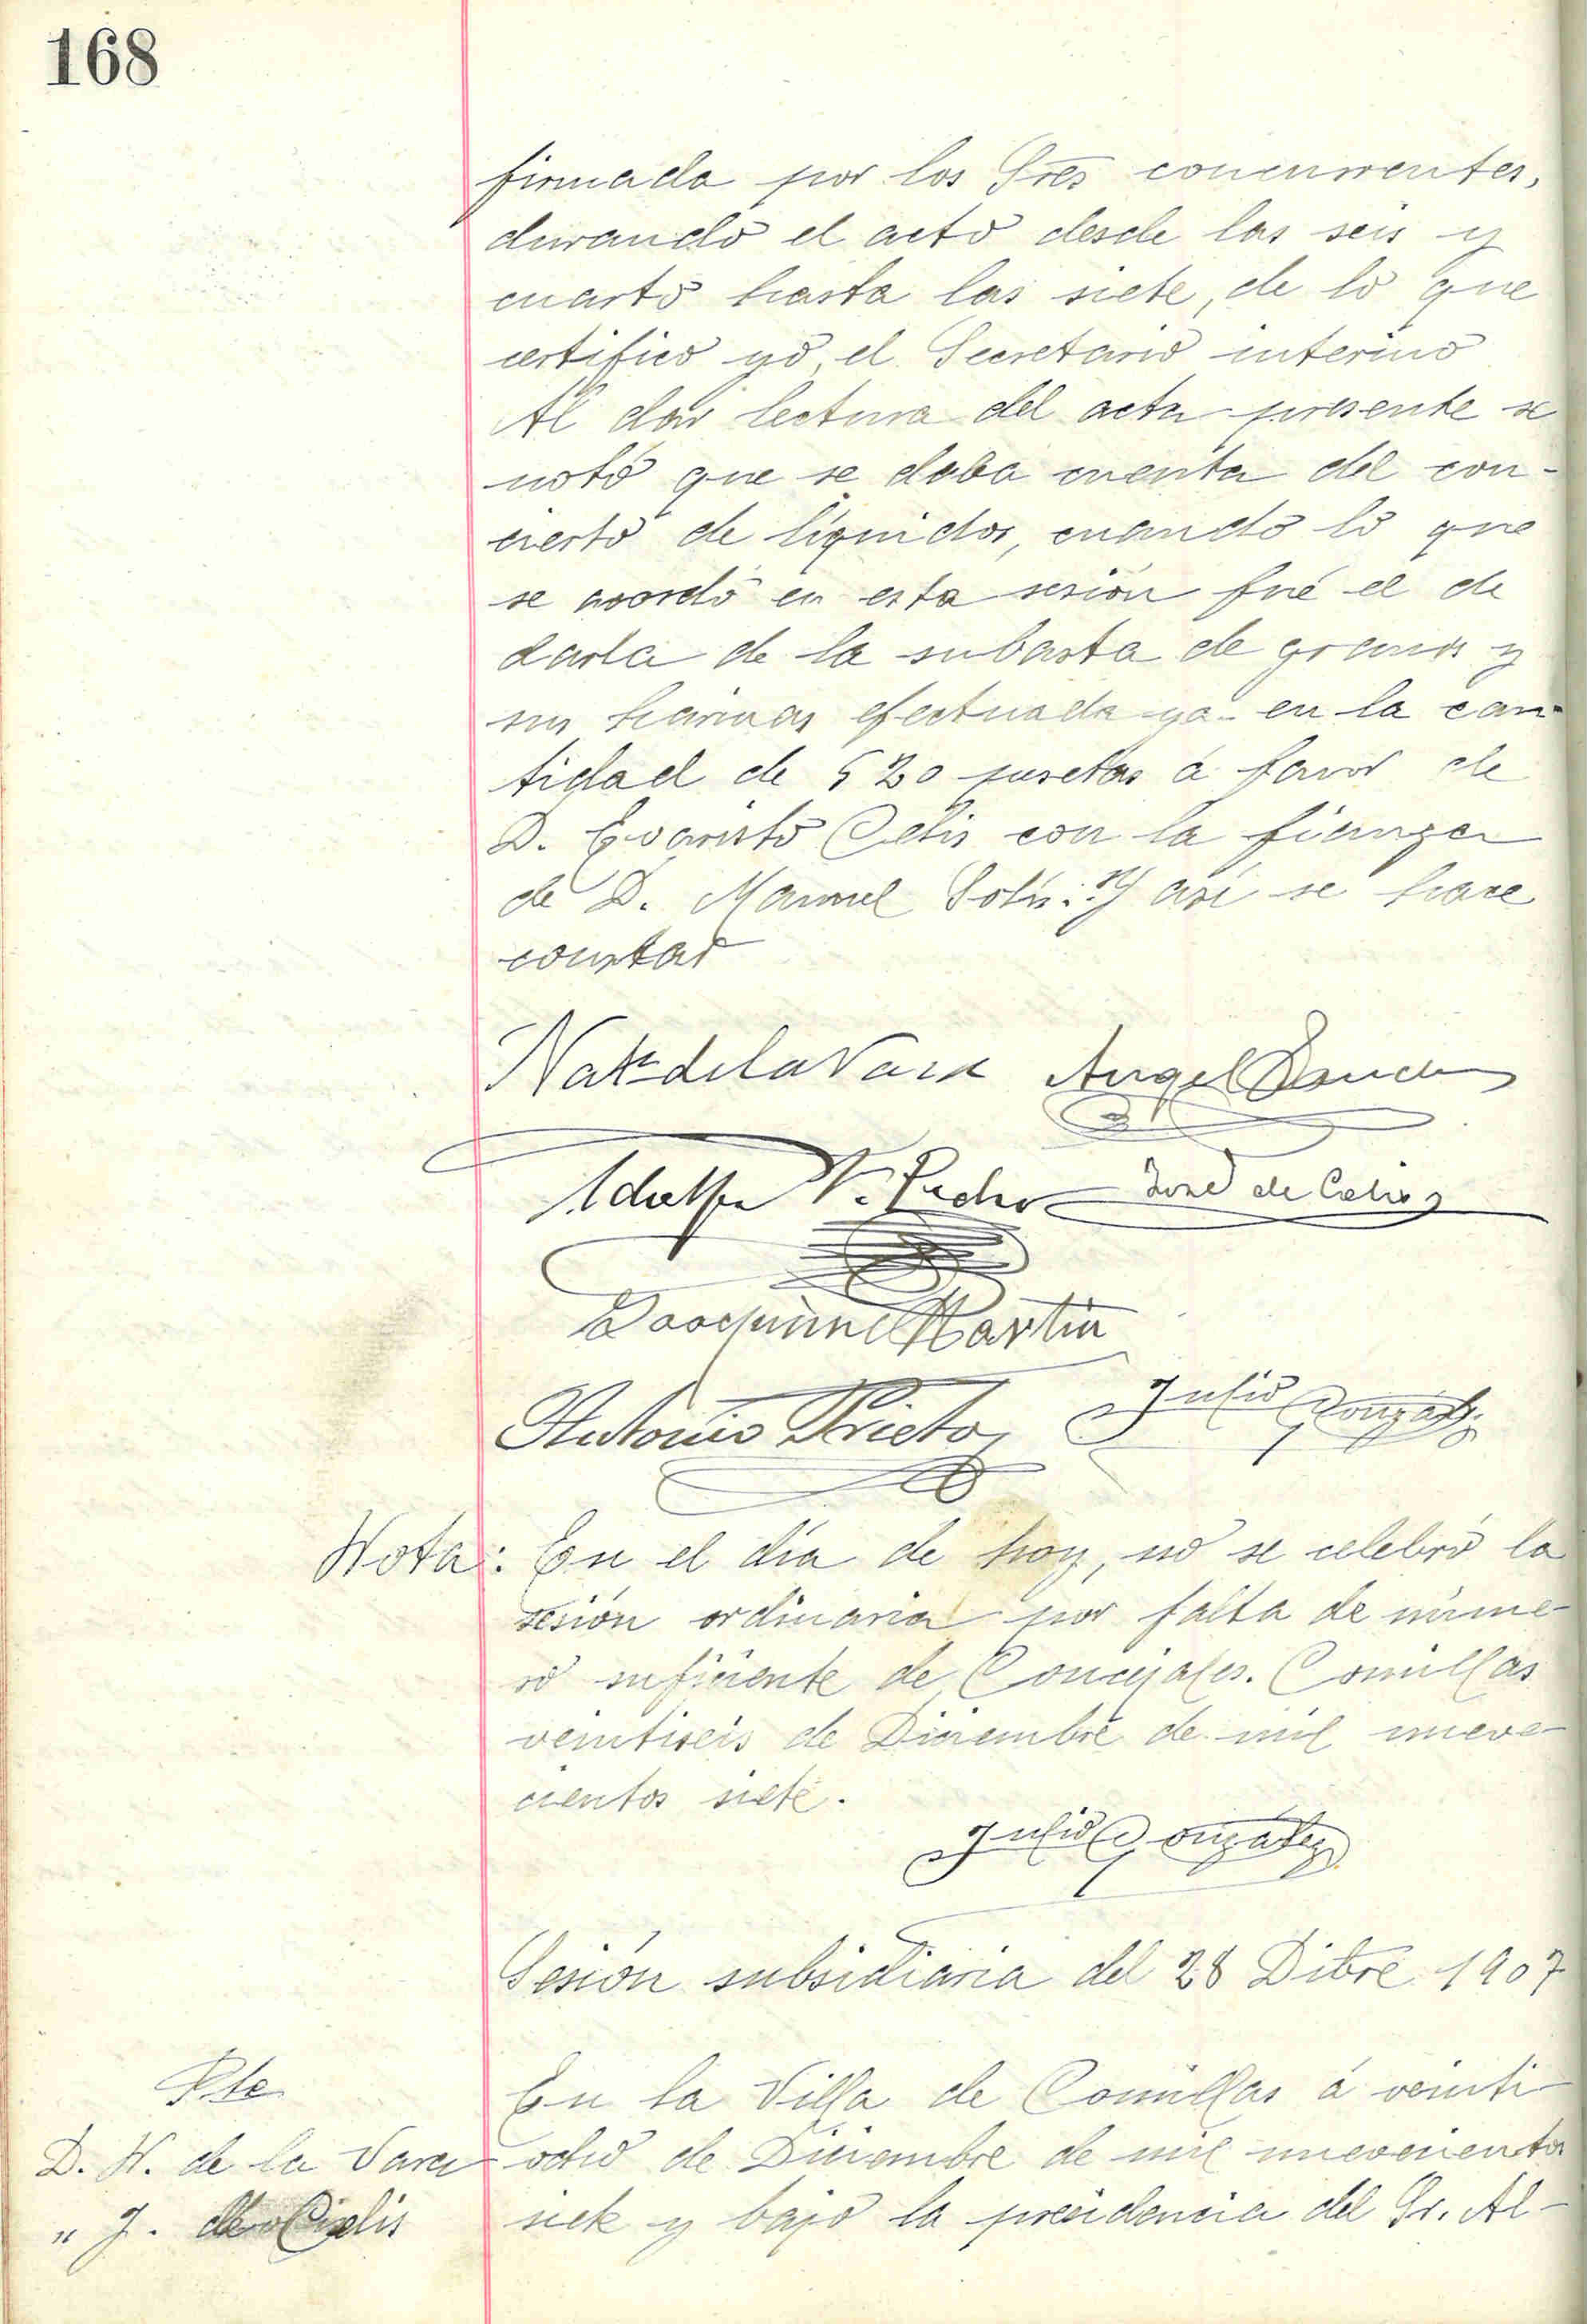 168
firmada por los Sres concurrentes,
durando el acto desde las seis y
cuarto hasta las siete, de lo que
certifico yo, el Secretario interino
Al dar lectura del acta presente se
notó que se daba cuenta del con-
cierto de líquidos, cuando lo que
se acordó en esta sesión fué el de
darla de la subasta de granos y
sus harinas efectuada ya en la can-
tidad de 520 pesetas á favor de
D. Evaristo Celis con la fianza
de D. Manuel Solís. Y así se hace
constar
Nat de la Vara Angel Sanchez
Adolfo V. Pedro José de Celis
Joaquin Martin
Antonio Prieto Julio Gonzalez
Nota: En el día de hoy, no se celebró la
sesión ordinaria por falta de núme-
ro suficiente de Concejales. Comillas
veintiseis de Diciembre de mil nueve-
cientos siete.
Julio Gonzalez
Sesión subsidiaria del 28 Dibre 1907
Pte
D. N. de la Vara
" J. de Celis
En la Villa de Comillas á veinti-
ocho de Diciembre de mil novecientos
siete y bajo la presidencia del Sr. Al-